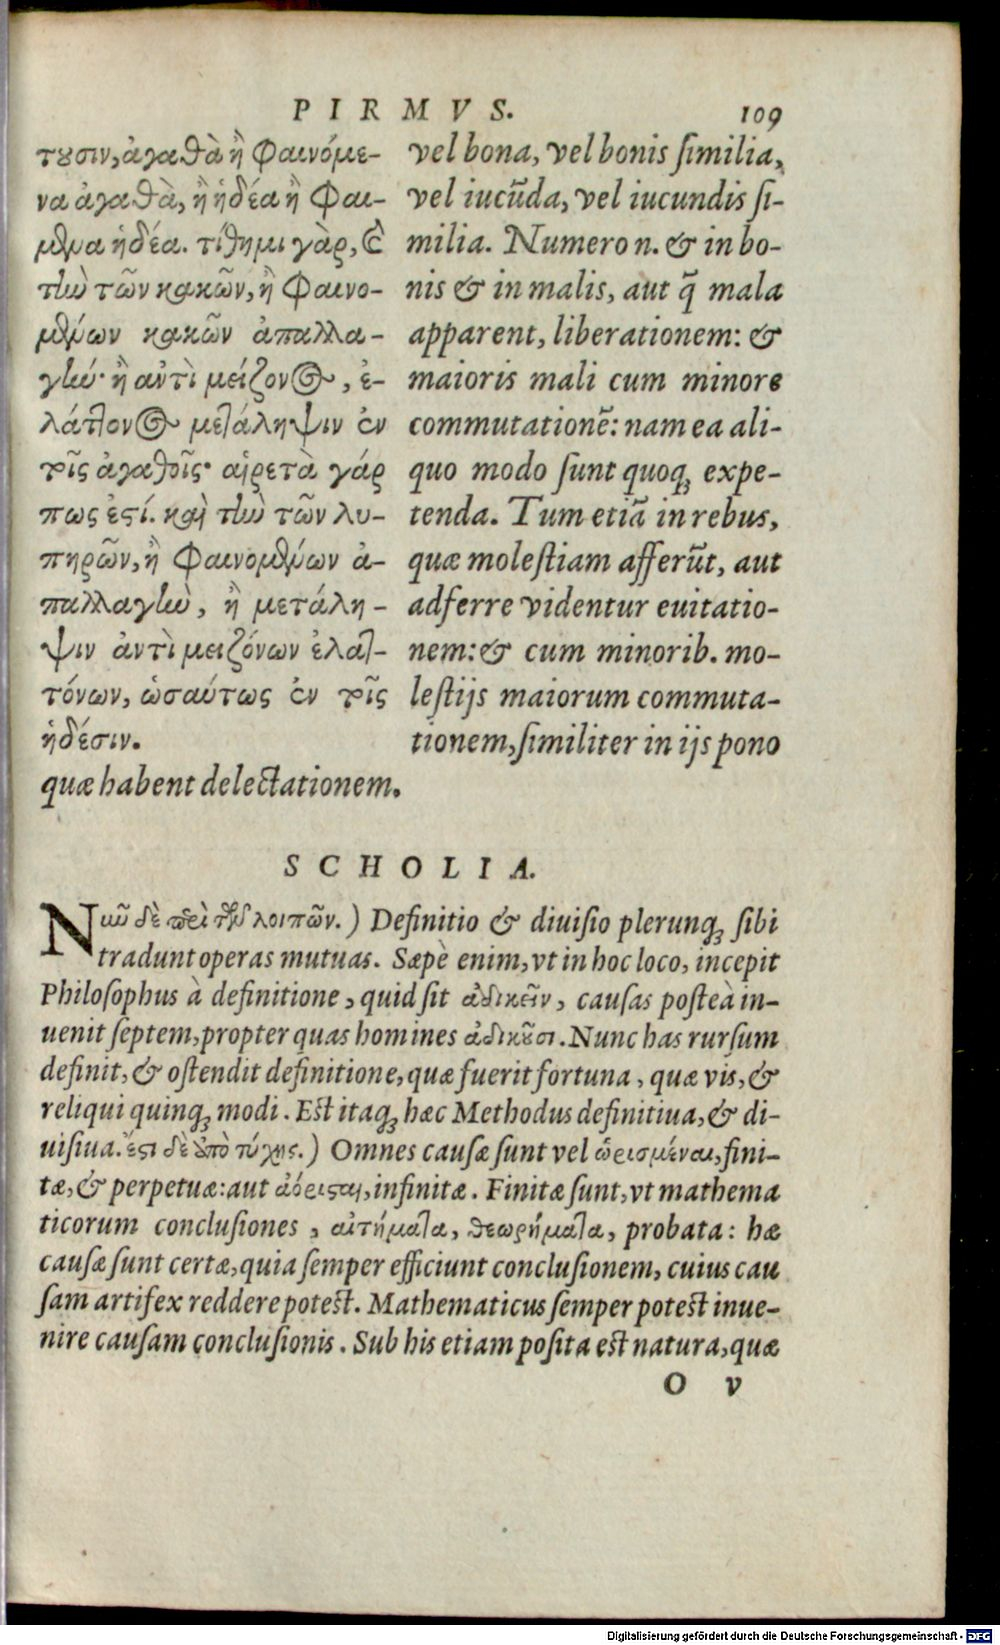 PIRMVS. 109
τουσιν, ἀγαθὰ ἢ φαινόμε-
να ἀγαθὰ, ἢ ἡδέα ἢ φαι-
μενα ἡδέα. τίθημι γὰρ, καὶ
τὴν τῶν κακῶν, ἢ φαινο-
μένων κακῶν ἀπαλλα-
γήν· ἢ ἀντὶ μείζονος, ἐ-
λάττονος μετάληψιν ἐν
τοῖς ἀγαθοῖς· αἱρετὰ γάρ
πως ἐστί. καὶ τὴν τῶν λυ-
πηρῶν, ἢ φαινομένων ἀ-
παλλαγὴν, ἢ μετάλη-
ψιν ἀντὶ μειζόνων ἐλατ-
τόνων, ὡσαύτως ἐν τοῖς
ἡδέσιν.
vel bona, vel bonis ſimilia,
vel iucūda, vel iucundis ſi-
milia. Numero n. & in bo-
nis & in malis, aut q̄ mala
apparent, liberationem: &
maioris mali cum minore
commutationē: nam ea ali-
quo modo ſunt quoq; expe-
tenda. Tum etiā in rebus,
quæ moleſtiam afferūt, aut
adferre videntur euitatio-
nem: & cum minorib. mo-
leſtijs maiorum commuta-
tionem, ſimiliter in ijs pono
quæ habent delectationem.
SCHOLIA.
Νῦν δὲ περὶ τῶν λοιπῶν.) Definitio & diuiſio plerunq; ſibi
tradunt operas mutuas. Sæpè enim, vt in hoc loco, incepit
Philoſophus à definitione, quid ſit ἀδικεῖν, cauſas poſteà in-
uenit ſeptem, propter quas homines ἀδικοῦσι. Nunc has rurſum
definit, & oſtendit definitione, quæ fuerit fortuna, quæ vis, &
reliqui quinq; modi. Eſt itaq; hæc Methodus definitiua, & di-
uiſiua. ἔστι δὲ ἀπὸ τύχης.) Omnes cauſæ ſunt vel ὡρισμέναι, fini-
tæ, & perpetuæ: aut ἀόρισται, infinitæ. Finitæ ſunt, vt mathema
ticorum concluſiones, αἰτήματα, θεωρήματα, probata: hæ
cauſæ ſunt certæ, quia ſemper efficiunt concluſionem, cuius cau
ſam artifex reddere poteſt. Mathematicus ſemper poteſt inue-
nire cauſam concluſionis. Sub his etiam poſita eſt natura, quæ
O v
Digitalisierung gefördert durch die Deutsche Forschungsgemeinschaft - DFG